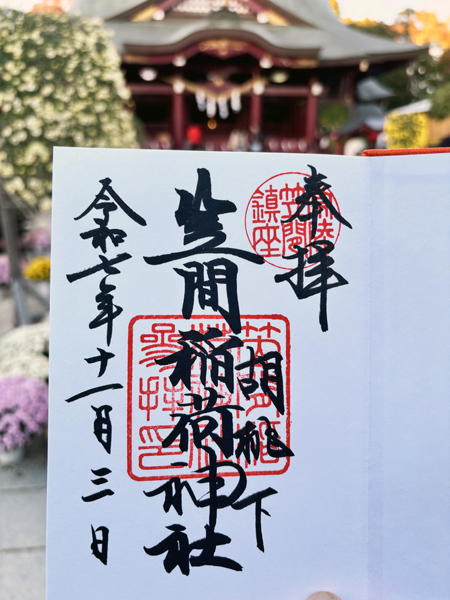 奉拝
常陸
笠間
鎮座
胡桃下
笠間稲荷神社
令和七年十一月三日